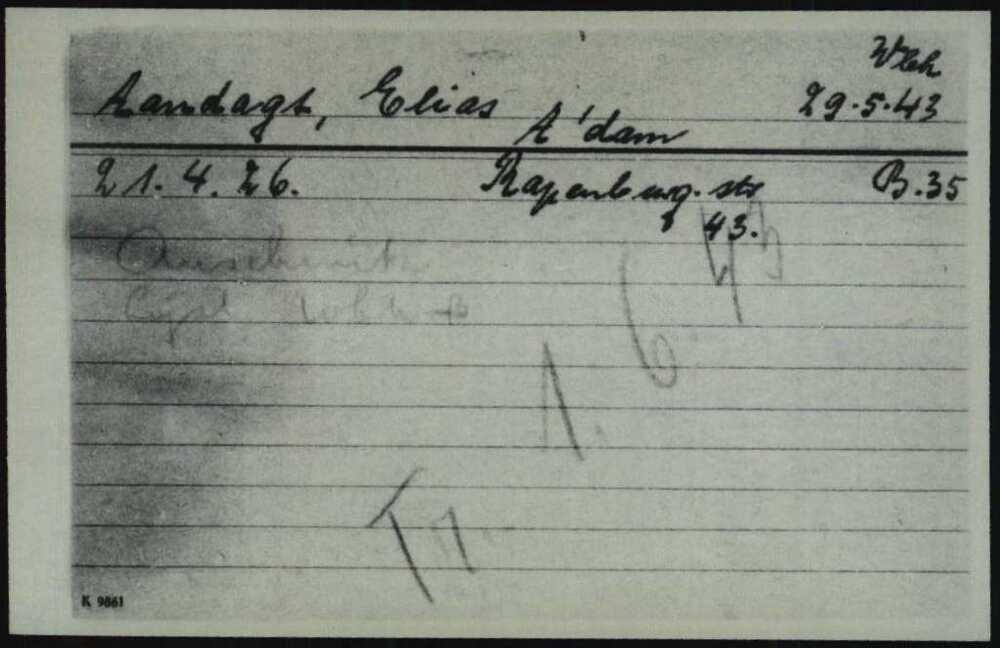 Wbk
Aandagt, Elias 29.5.43
A'dam
21.4.26. Rapenburg.str B.35
43.
Auschwitz
Tr. 1. 6. 43
K 9861